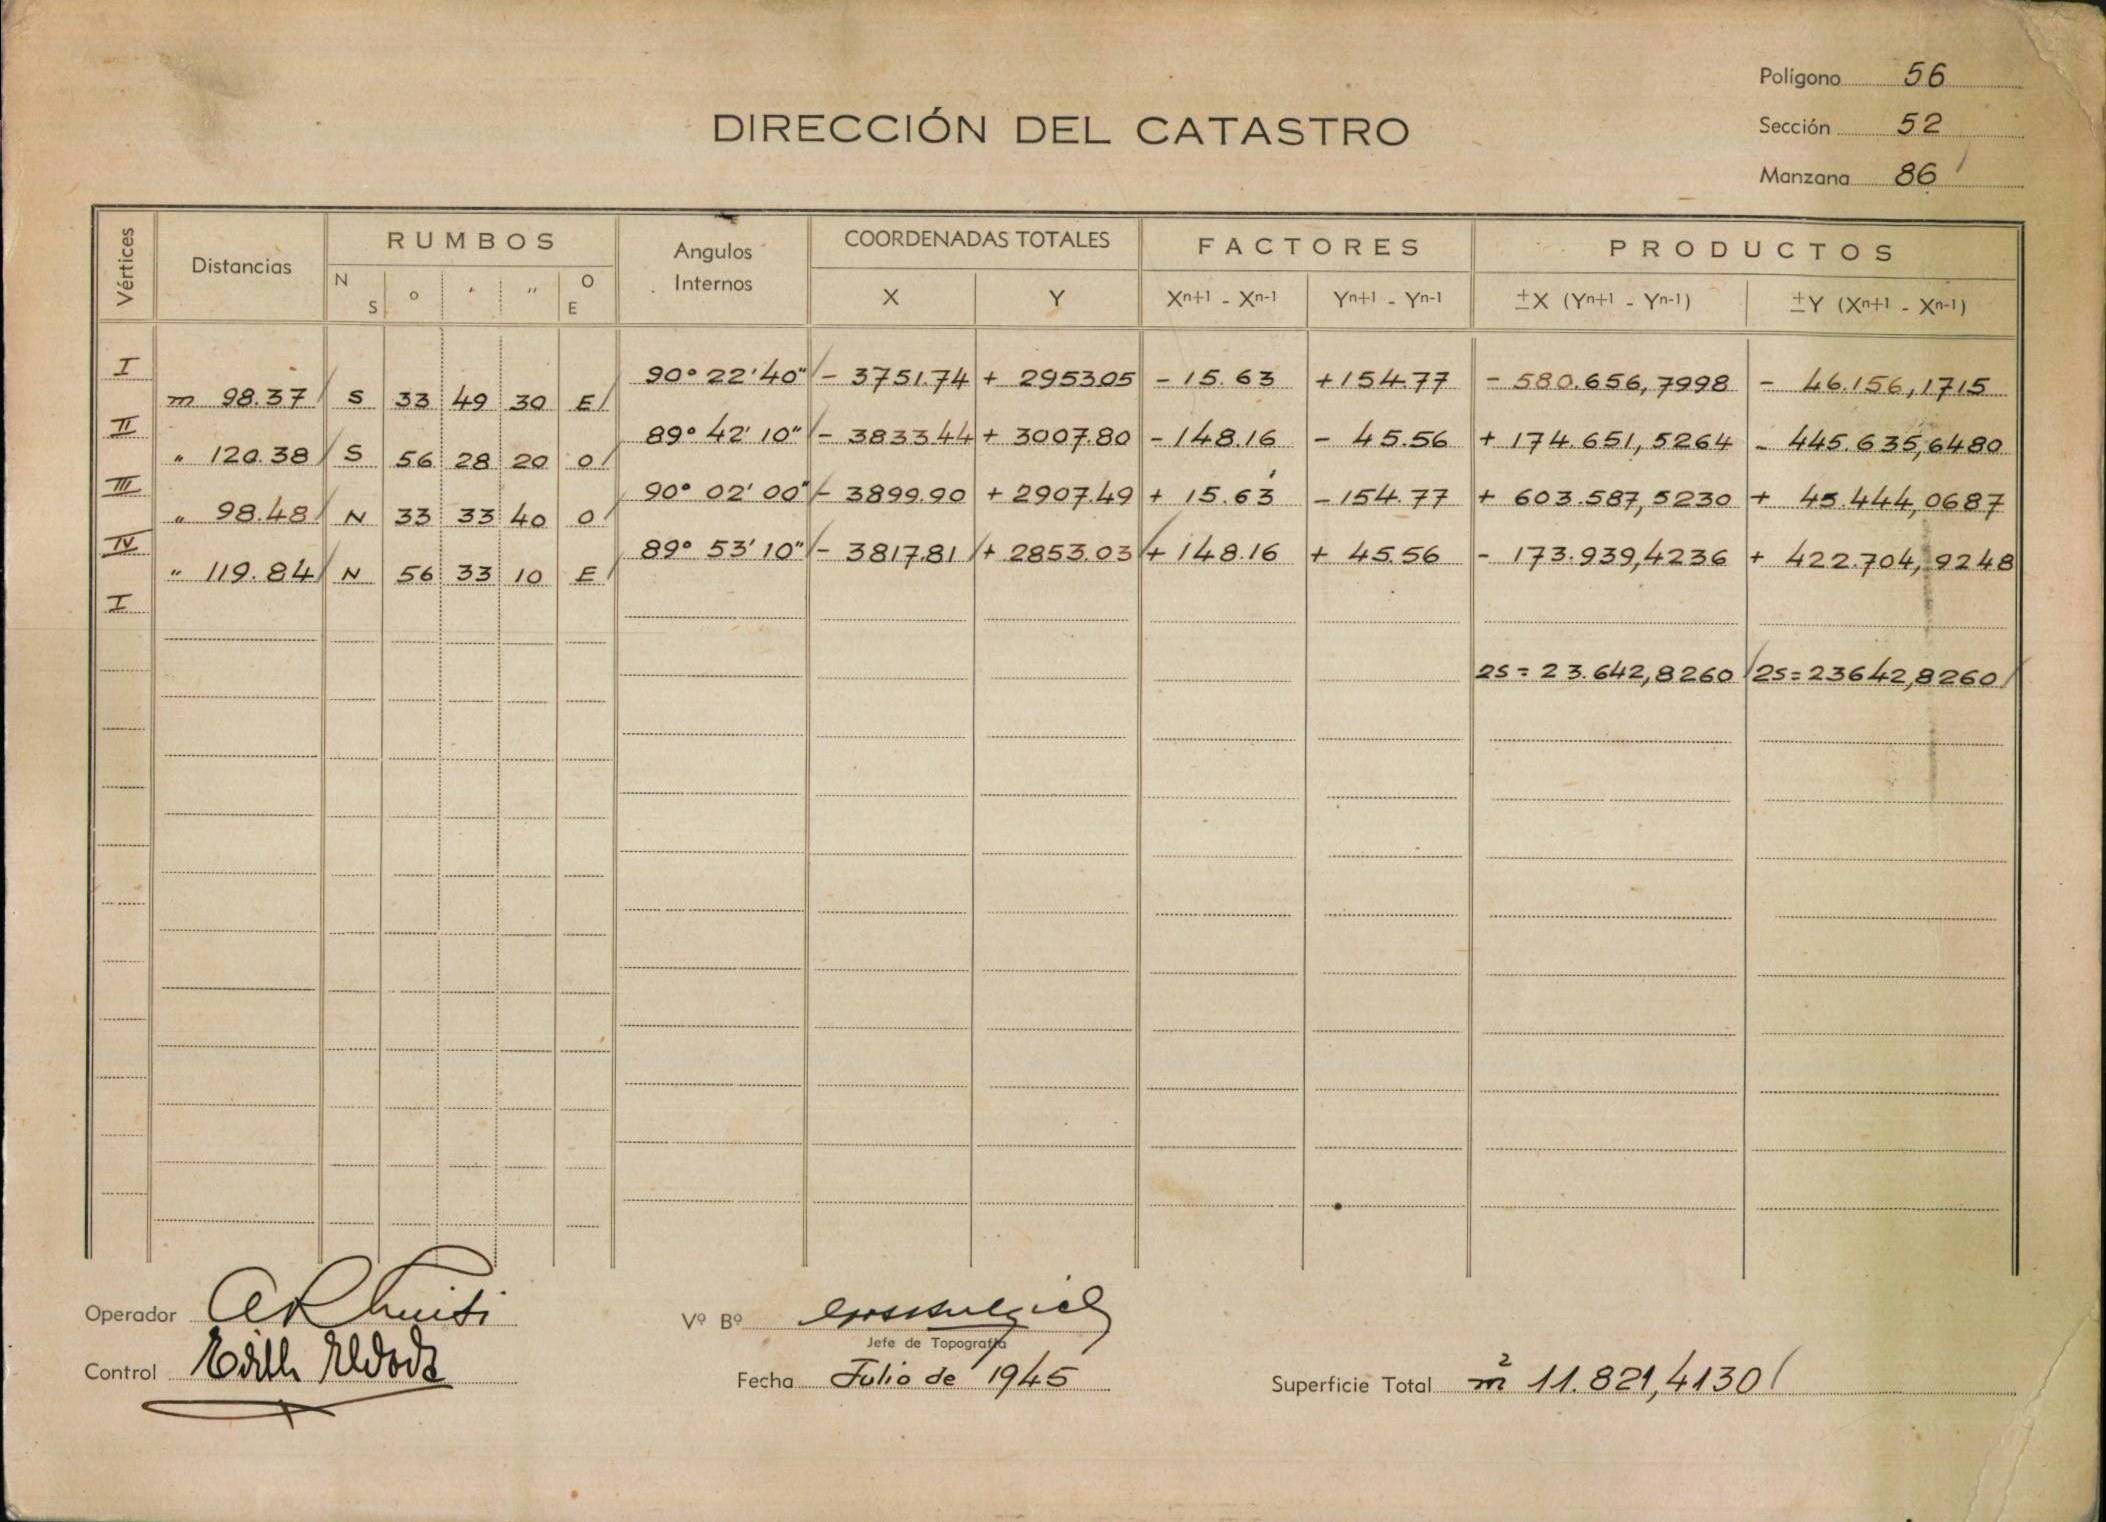 Polígono 56
DIRECCIÓN DEL CATASTRO
Sección 52
Manzana 86
Vértices Distancias RUMBOS Angulos Internos COORDENADAS TOTALES FACTORES PRODUCTOS
N S o ' '' O E X Y Xn+1 - Xn-1 Yn+1 - Yn-1 ±X (Yn+1 - Yn-1) ±Y (Xn+1 - Xn-1)
I 90° 22' 40" - 3751.74 + 2953.05 - 15.63 + 154.77 - 580.656,7998 - 46.156,1715
m 98.37 S 33 49 30 E
II 89° 42' 10" - 3833.44 + 3007.80 - 148.16 - 45.56 + 174.651,5264 - 445.635,6480
" 120.38 S 56 28 20 O
III 90° 02' 00" - 3899.90 + 2907.49 + 15.63 - 154.77 + 603.587,5230 + 45.444,0687
" 98.48 N 33 33 40 O
IV 89° 53' 10" - 3817.81 + 2853.03 + 148.16 + 45.56 - 173.939,4236 + 422.704,9248
" 119.84 N 56 33 10 E
I
2S = 23.642,8260 2S = 23642,8260
Operador
Vº Bº
Jefe de Topografía
Control
Fecha Julio de 1945
Superficie Total m² 11.821,4130